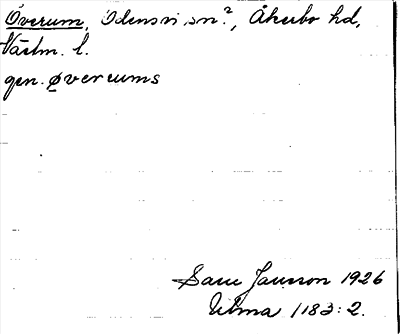 Överum, Odensvi sn?, Åkerbo hd,
Västm. l.
gen. øvereums
Sam Jansson 1926
Ulma 1183:2.